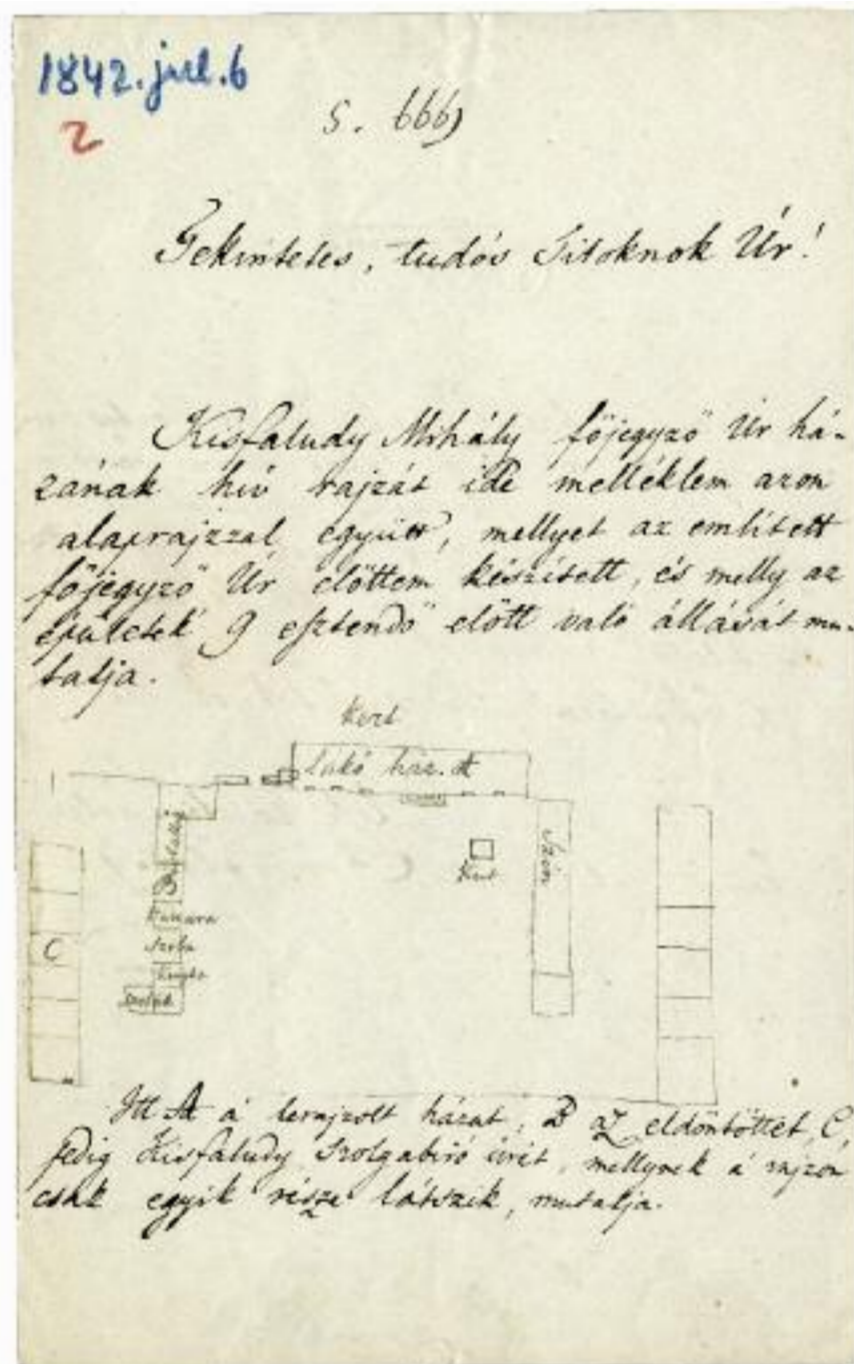 1842. jul. 6
2
S. 666)
Tekintetes, tudós Titoknok Úr!
Kisfaludy Mihály főjegyző Úr há-
zának hiv rajzát ide melléklem azon
alaprajzzal együtt, mellyet az említett
főjegyző Úr előttem készített, és melly az
épületek 9 esztendő előtt való állását mu-
tatja.
Kert
Lakó ház. A
Istálló
Kút
Szin
Kamara
Szoba
Konyha
C
Itt A a' lerajzolt házat, B az eldöntöttet, C
pedig Kisfaludy Szolgabiró úrét, mellynek a' rajzon
csak egyik része látszik, mutatja.